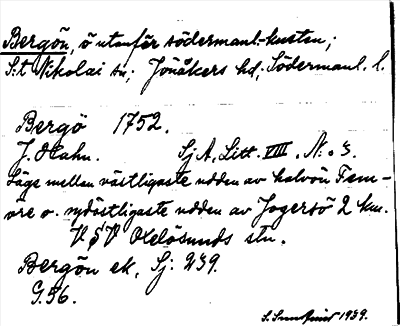 Bergön, ö utanför södermanl.-kusten;
S:t Nikolai sn; Jönåkers hd; Södermanl. l.
Bergö 1752.
J. Hahn. Sj A, Litt. VIII, N:o 3.
Läge mellan västligaste udden av halvön Fem-
öre o. sydöstligaste udden av Jogersö 2 km.
V § V Oxelösunds stn.
Bergön ek, Sj: 239.
G. 56.
S. Sundqvist 1939.